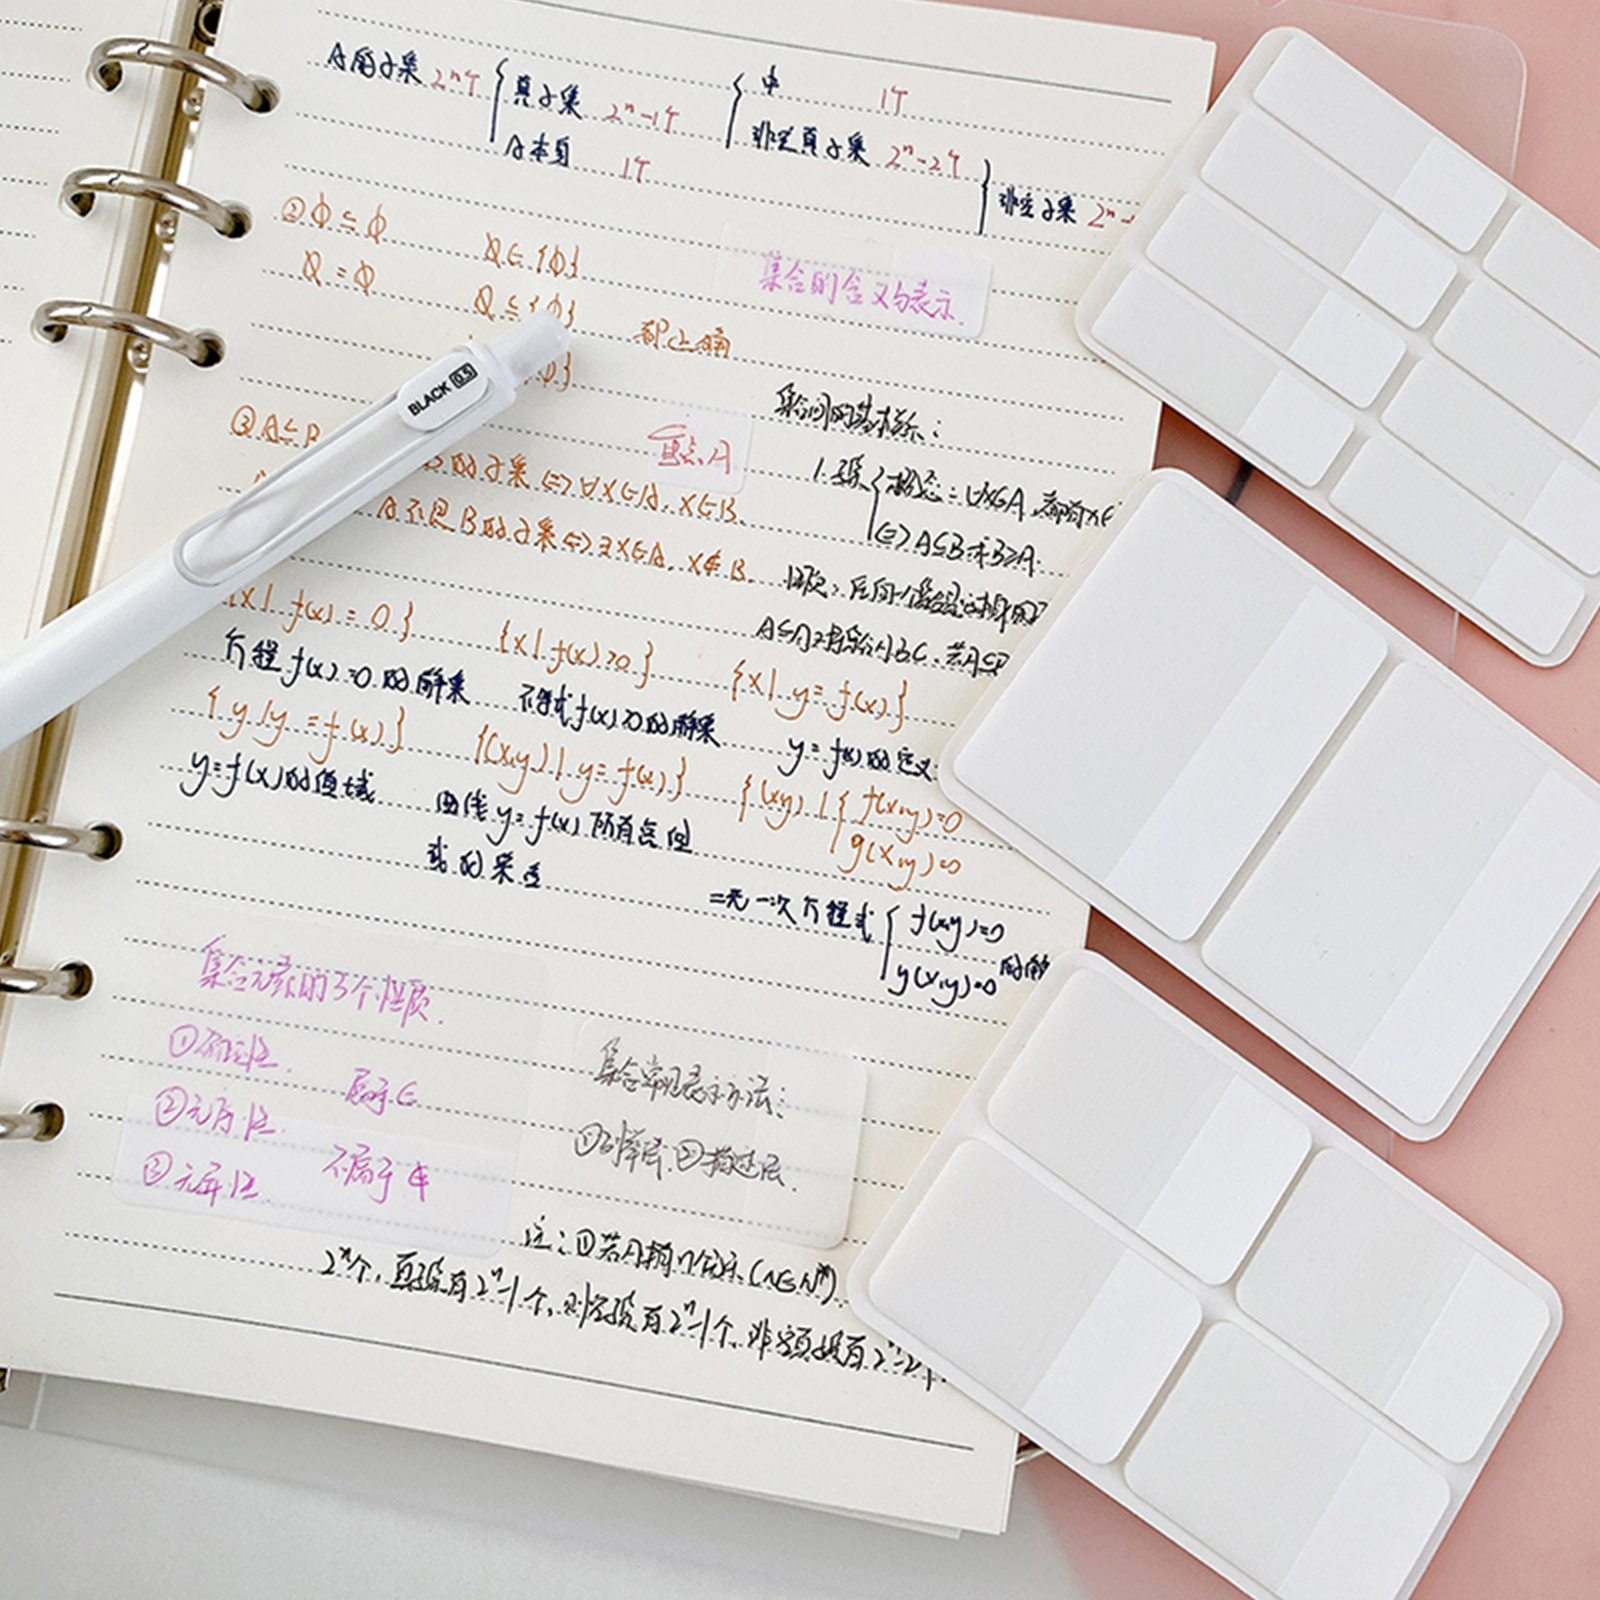 A的子集 2ⁿ个 { 真子集 2ⁿ-1个 { φ 1个
非空真子集 2ⁿ-2个
A本身 1个
} 非空子集 2ⁿ-
② φ ⊆ φ φ ∈ {φ}
φ = φ φ ⊆ {φ} 都正确
φ}
集合的含义与表示.
BLACK 0.5
③ A ⊆ B
重点
B的子集 ⇔ ∀x∈A, x∈B.
A不是B的子集 ⇔ ∃x∈A, x∉B.
集合间的基本关系:
1.子集 { 概念: ∀x∈A, 都有x∈
⇔ A⊆B或B⊇A.
{x | f(x) = 0} {x | f(x) > 0} {x | y = f(x)}
方程 f(x)=0 的解集 不等式 f(x)>0 的解集 y = f(x) 的定义
{y | y = f(x)} {(x,y) | y = f(x)} {(x,y) | { f(x,y)=0
g(x,y)=0
y=f(x)的值域 曲线 y=f(x) 所有点
的集合
二元一次方程式 { f(x,y)=0
y(x,y)=0 的解
集合元素的3个性质.
① 确定性. 属于 ∈
② 性. 不属于 ∉
③ 性.
集合常见表示方法:
①列举法.②描述法.
注: ①若A有n个元素(n∈N*).
2ⁿ个, 真子集有2ⁿ-1个, 非空子集有2ⁿ-1个, 非空真子集有2ⁿ-2个